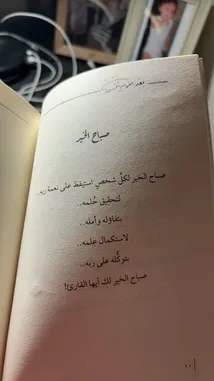 صباح الخير
صباح الخير لكل شخصٍ استيقظ على نعمة ربه..
لتحقيق حُلمه..
بتفاؤله وأمله..
لاستكمال عِلمه..
بتوكُّله على ربه..
صباح الخير لك أيها القارئ!
١٠